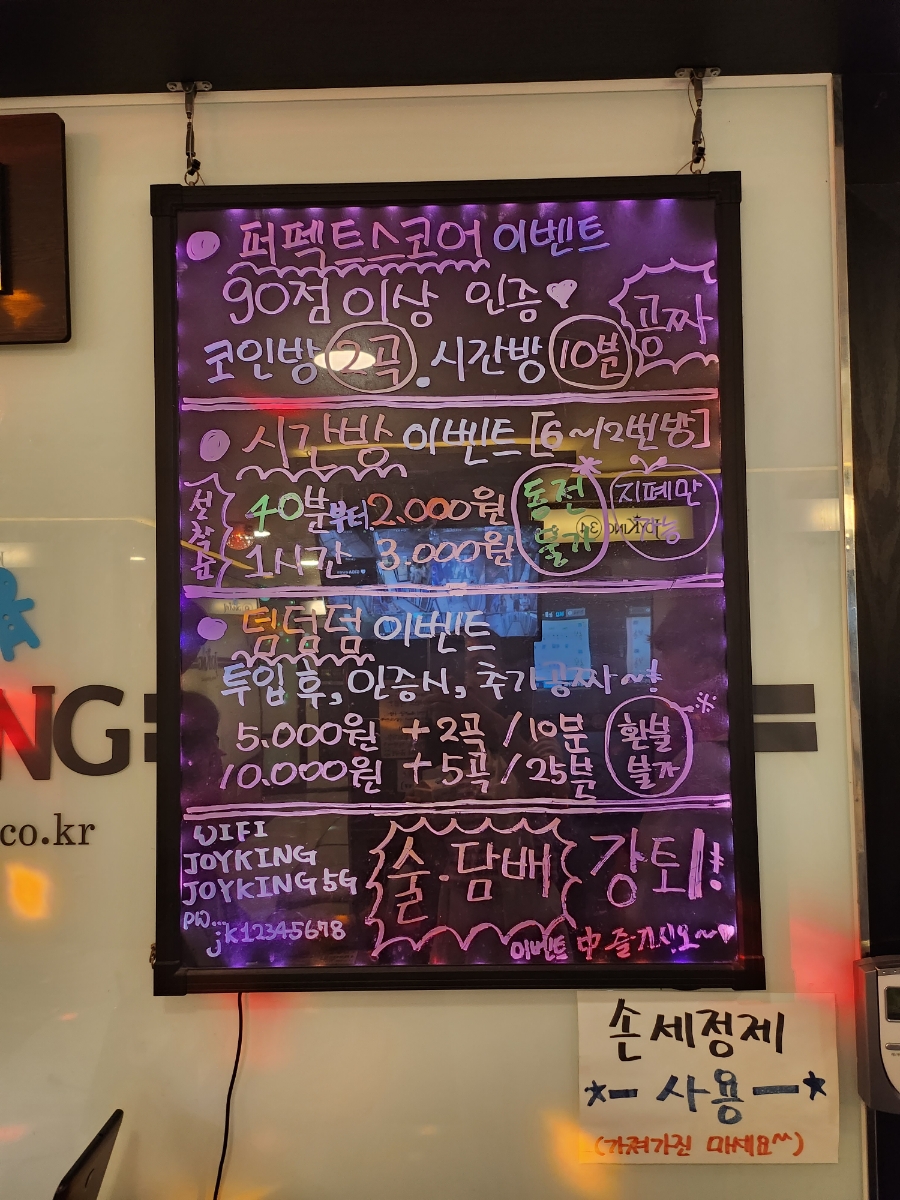 퍼펙트스코어 이벤트
90점 이상 인증♥
공짜
코인방 2곡. 시간방 10분
시간방 이벤트 [6~12번방]
선착순
40분부터 2.000원
1시간 3.000원
동전
불가
지폐만
가능
덤덤덤 이벤트
투입 후, 인증시, 추가공짜~!
5.000원 +2곡 /10분
10.000원 +5곡 /25분
※
환불
불가
WIFI
JOYKING
JOYKING5G
PW...
jk12345678
술.담배 강퇴!!
이벤트 中 즐기시오~♥
NG
co.kr
손세정제
*- 사용 -*
(가져가진 마세요^^)